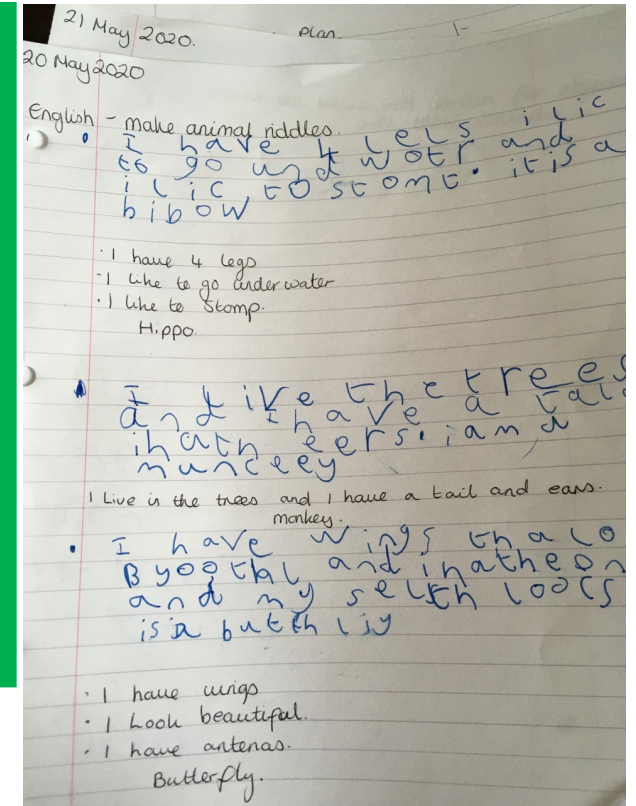 21 May 2020.
Plan.
1-
20 May 2020
English - make animal riddles.
I have 4 lels i lic
to go und wotr and
i lic to stomt. it is a
bibow
· I have 4 legs
· I like to go under water
· I like to Stomp.
Hippo.
I live the trees
and I have a tale
ihath eers. i am a
munceey
I Live in the trees and I have a tail and ears.
monkey.
I have wings tha lo
Byoothl and inatheon
and my selth loocs
is a butthliy
· I have wings
· I Look beautiful.
· I have antenas.
Butterfly.